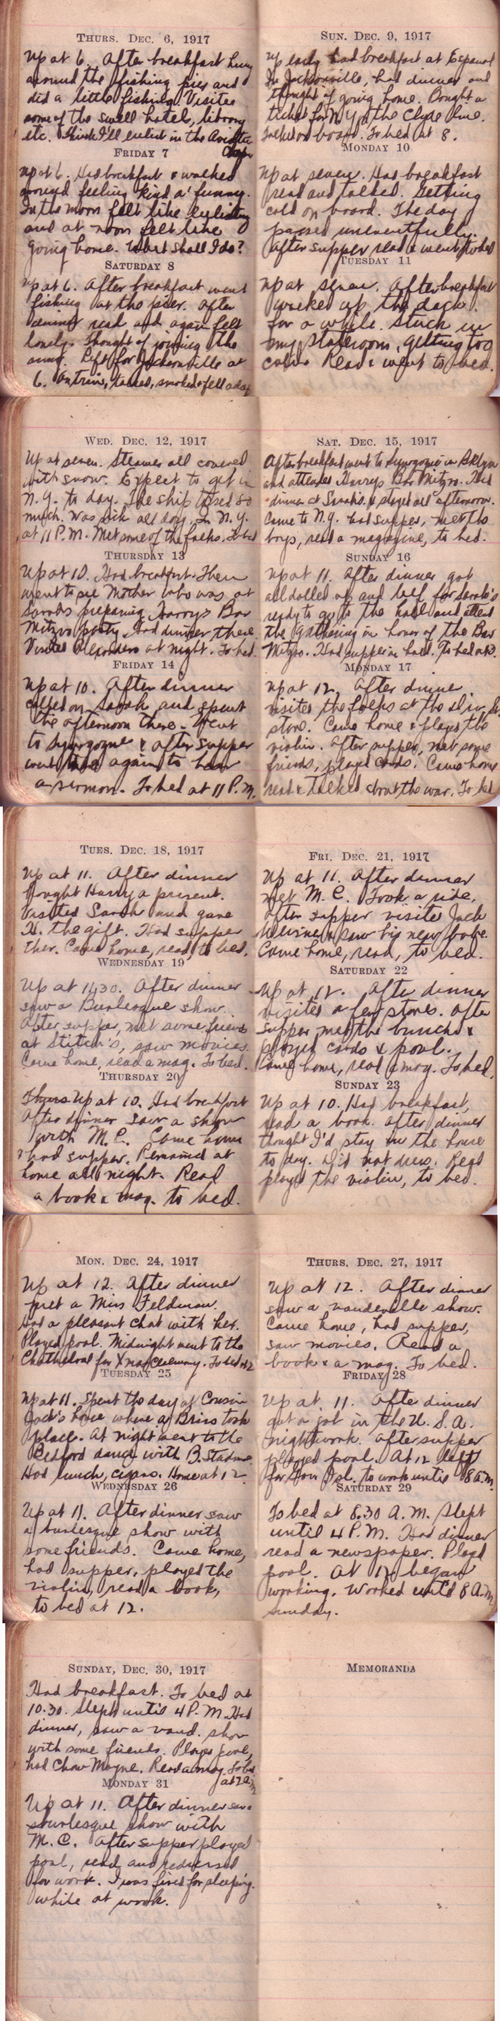 THURS. DEC. 6, 1917
Up at 6. After breakfast hung
around the fishing pier and
did a little fishing. Visited
some of the swell hotel, library
etc. Think I'll enlist in the Aviation
FRIDAY 7
Up at 6. Had breakfast & walked
around feeling kind o' funny.
In the morn felt like enlisting
and at noon felt like
going home. What shall I do?
SATURDAY 8
Up at 6. After breakfast went
fishing at the pier. After
dinner read, and again felt
lonely. Thought of joining the
army. Left for Jacksonville at
6. On train, talked, smoked & fell asleep
SUN. DEC. 9, 1917
Up early had breakfast at
In Jacksonville, had dinner and
thought of going home. Bought a
ticket for N.Y. on the Clyde line.
on board. To bed at 8.
MONDAY 10
Up at seven. Had breakfast
read and talked. Getting
cold on board. The day
passed uneventfully.
After supper read & went to bed
TUESDAY 11
Up at seven. After breakfast
walked up the deck
for a while. Stuck in
my stateroom, getting too
cold. Read & went to bed.
WED. DEC. 12, 1917
Up at seven. Steamer all covered
with snow. Expect to get in
N.Y. to day. The ship tossed so
much. Was sick all day. In N.Y.
at 11 P.M. Met some of the folks. To bed
THURSDAY 13
Up at 10. Had breakfast. Then
went to see Mother who was at
Sarah's preparing Harry's Bar
Mitzvo party. Had dinner there.
Visited at night. To bed.
FRIDAY 14
Up at 10. After dinner
called on Sarah and spent
the afternoon there. Went
to synagogue & after supper
went there again to hear
a sermon. To bed at 11 P.M.
SAT. DEC. 15, 1917
After breakfast went to synagogue in Bklyn
and attended Harry's Bar Mitzvo. Had
dinner at Sarah's & stayed all afternoon.
Came to N.Y. had supper, met the
boys, read a magazine, to bed.
SUNDAY 16
Up at 11. After dinner got
all dolled up and left for Sarah's
ready to go to the hall and attend
the gathering in honor of the Bar
Mitzvo. Had supper in hall. To bed at 2.
MONDAY 17
Up at 12. After dinner,
visited the folks at the
store. Came home & played the
violin. After supper, met some
friends, played cards. Came home
read & talked about the war. To bed
TUES. DEC. 18, 1917
Up at 11. After dinner
bought Harry a present.
Visited Sarah and gave
H. the gift. Had supper
ther. Came home, read, to bed.
WEDNESDAY 19
Up at 11.30. After dinner
saw a Burlesque show.
After supper, met some friends
at saw movies.
Came home, read a mag. To bed.
THURSDAY 20
Up at 10. Had breakfast
After dinner saw a show
with M. C. Came home
& had supper. Remained at
home all night. Read
a book & mag. to bed.
FRI. DEC. 21, 1917
Up at 11. After dinner
met M. C. Took a ride,
After supper visited Jack
Levine & saw his new babe.
Came home, read, to bed.
SATURDAY 22
Up at 12. After dinner
visited a few stores. After
supper met the bunch &
played cards & pool.
Came home, read a mag. To bed.
SUNDAY 23
Up at 10. Had breakfast,
read a book. After dinner
thought I'd stay in the house
to day. Did not dress. Read
played the violin, to bed.
MON. DEC. 24, 1917
Up at 12. After dinner
met a Miss Feldman.
Had a pleasant chat with her.
Played pool. Midnight went to the
Cathedral for Xmas ceremony. To bed at 2
TUESDAY 25
Up at 11. Spent the day at Cousin
Jack's house where a Briss took
place. At night went to the
Bedford dance with B.
Had lunch, cigars. Home at 12.
WEDNESDAY 26
Up at 11. After dinner saw
a burlesque show with
some friends. Came home,
had supper, played the
violin, read a book,
to bed at 12.
THURS. DEC. 27, 1917
Up at 12. After dinner
saw a vaudeville show.
Came home, had supper,
saw movies. Read a
book & a mag. To bed.
FRIDAY 28
Up at 11. After dinner
got a job in the U. S. A.
nightwork. After supper
played pool. At 12 left
for Gov. Isl. to work until 8 A.M.
SATURDAY 29
To bed at 8.30 A.M. Slept
until 4 P.M. Had dinner
read a newspaper. Played
pool. At 12 began
working. Worked until 8 A.M.
Sunday.
SUNDAY, DEC. 30, 1917
Had breakfast. To bed at
10.30. Slept until 4 P.M. Had
dinner, saw a vaud. show
with some friends. Played pool,
had Chow Mayne. Read a mag. To bed
at 12
MONDAY 31
Up at 11. After dinner saw a
burlesque show with
M. C. After supper played
pool, read, and
for work. I was fired for sleeping
while at work.
MEMORANDA